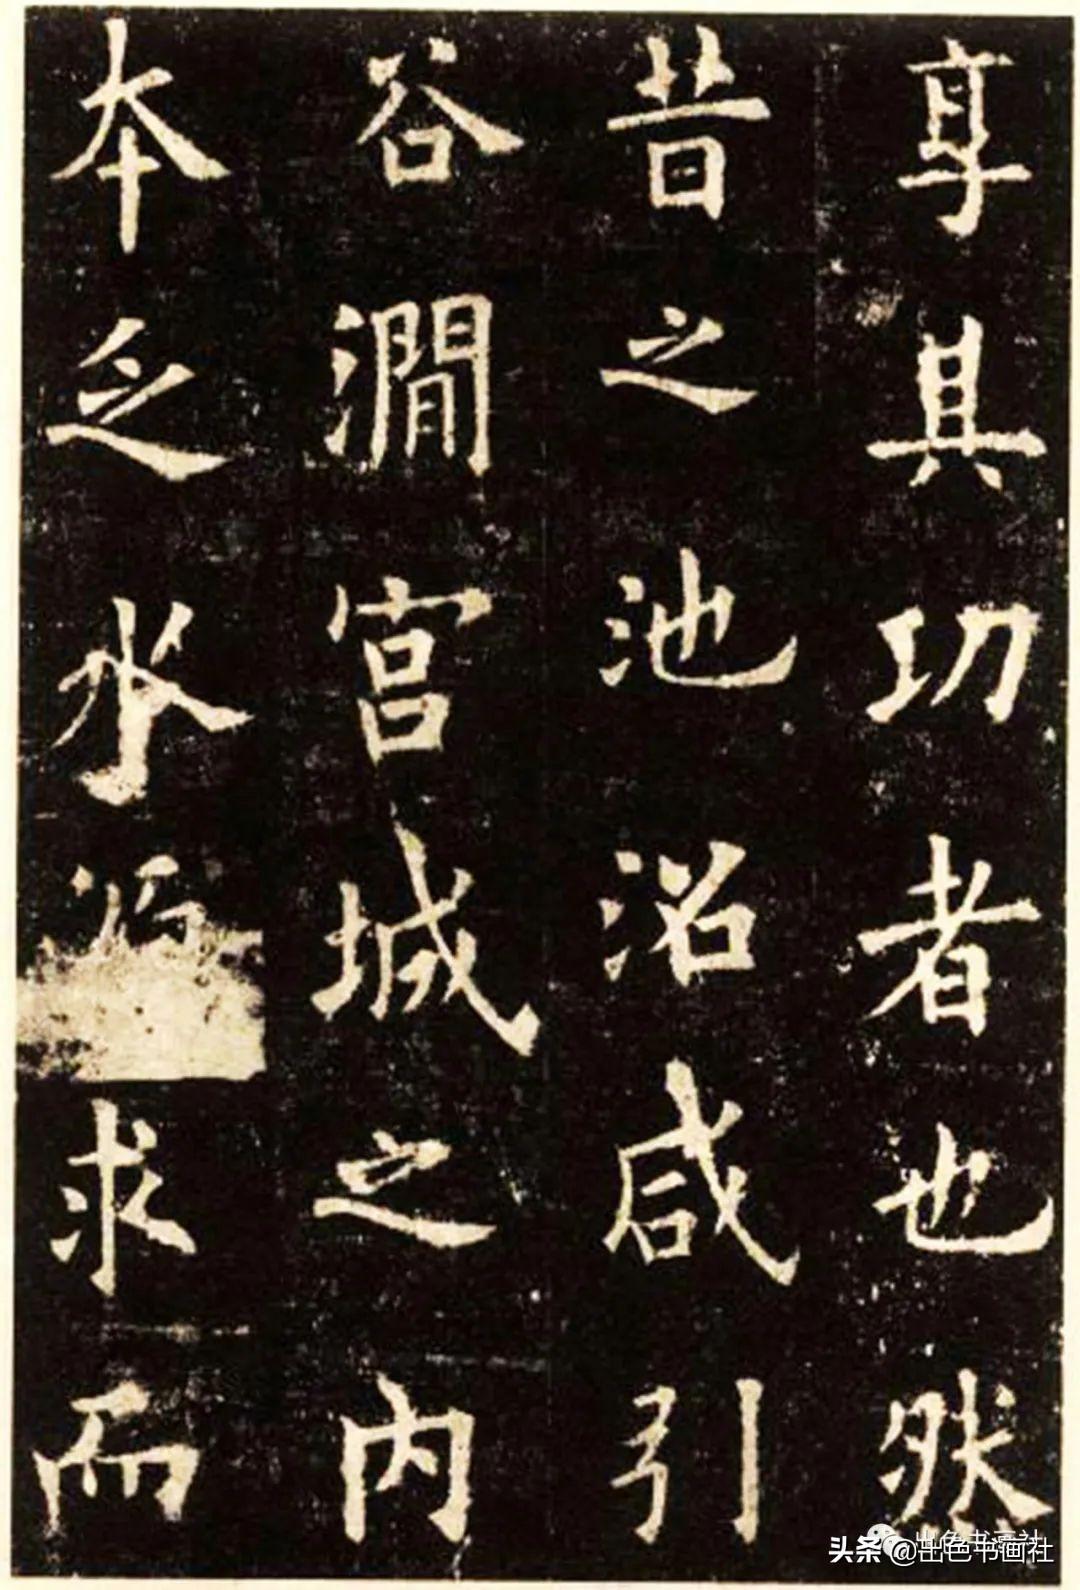 享其功者也然
昔之池沼咸引
谷澗宮城之內
本乏水源求而
出色书画社
头条@出色书画社